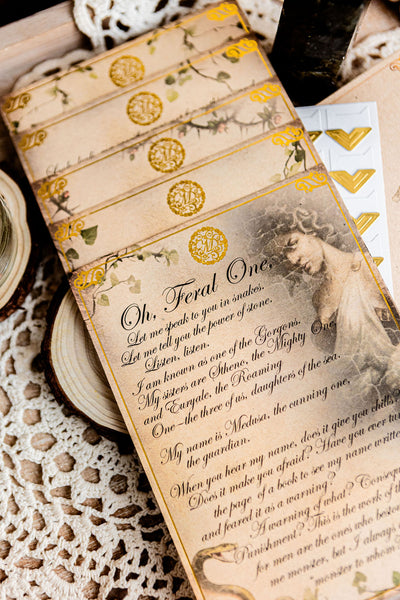 Oh, Feral One,
Let me speak to you in snakes.
Let me tell you the power of stone.
Listen, listen.
I am known as one of the Gorgons.
My sisters are Stheno, the Mighty One
and Euryale, the Roaming
One – the three of us, daughters of the sea.
My name is Medusa, the cunning one,
the guardian.
When you hear my name, does it give you chills?
Does it make you afraid? Have you ever tur
the page of a book to see my name written
and feared it as a warning?
A warning of what? Consequ
Punishment? This is the work of th
for men are the ones who besto
me monster, but I always
"monster to whom